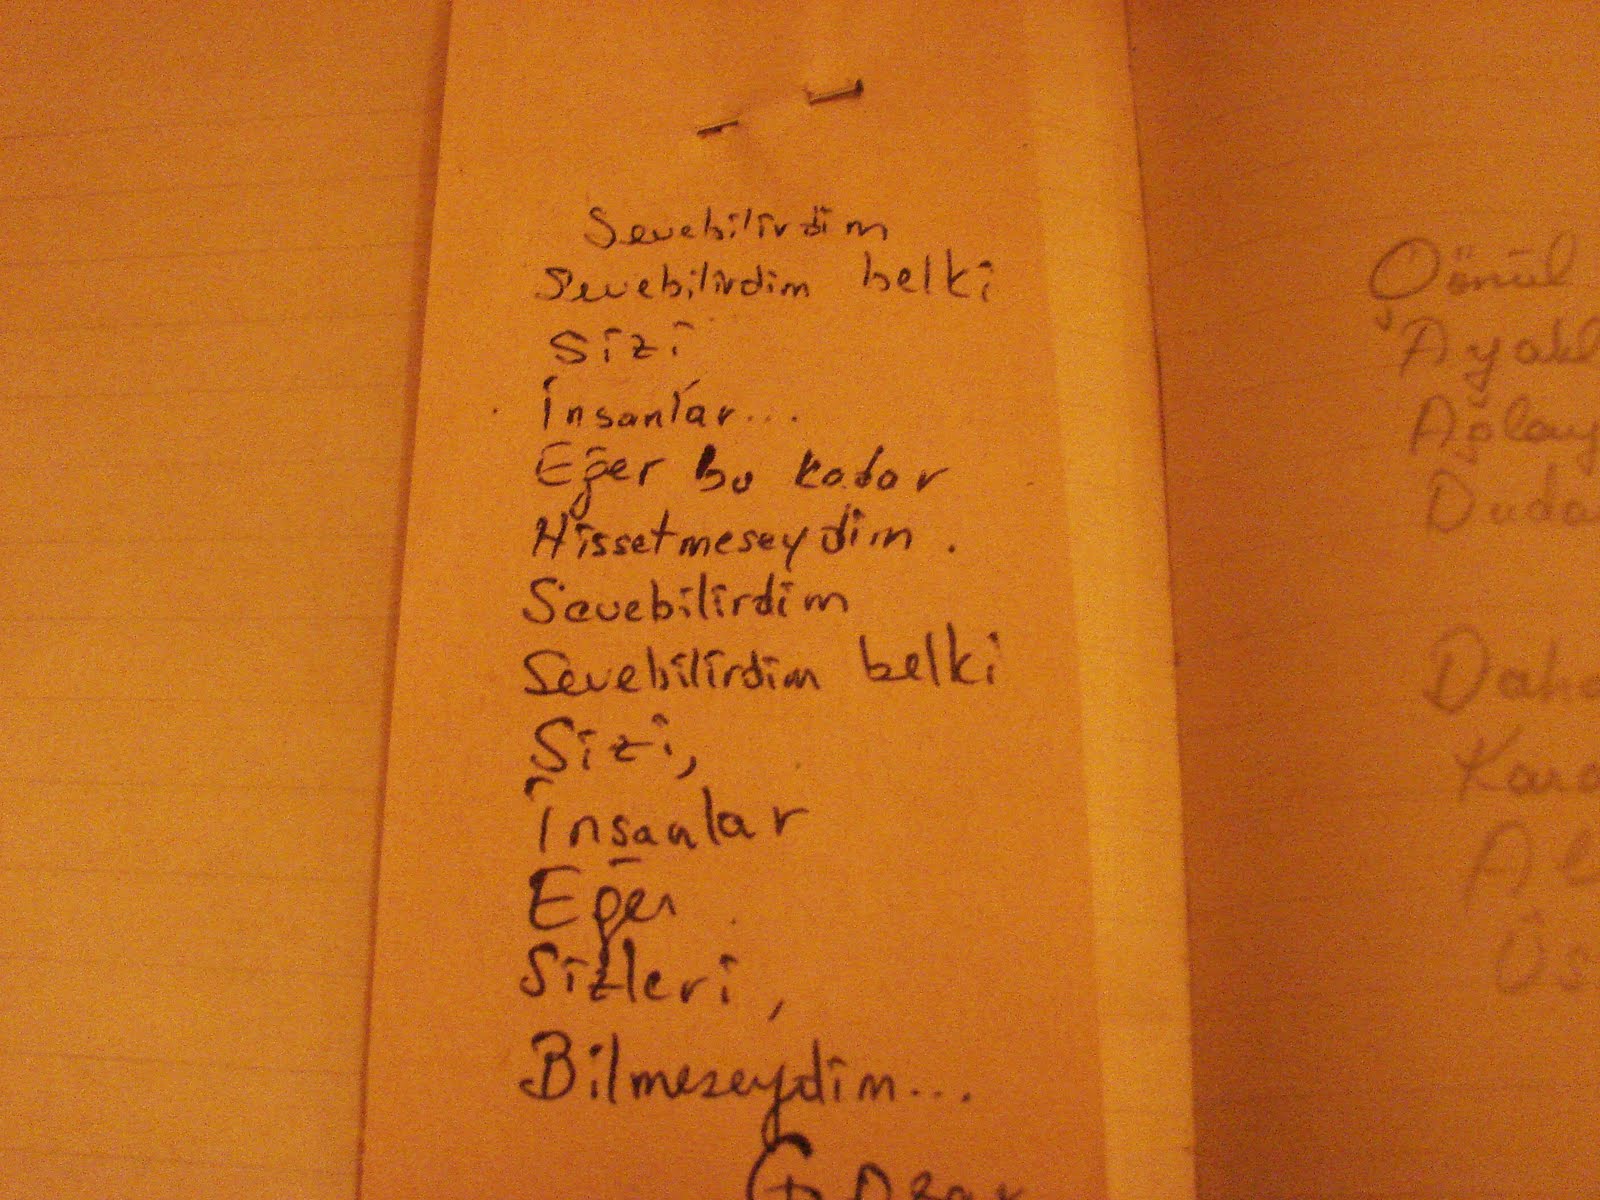 Sevebilirdim
Sevebilirdim belki
Sizi
İnsanlar...
Eğer bu kadar
Hissetmeseydim.
Sevebilirdim
Sevebilirdim belki
Sizi,
İnsanlar
Eğer
Sizleri,
Bilmeseydim...
Gönül
Ayakl
Ağlay
Duda
Daha
Kara
Al
Üs